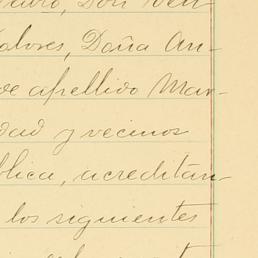 Don Ven-
Dolores, Doña An-
de apellido Mar-
dad y vecinos
blica, acreditan-
los siguientes